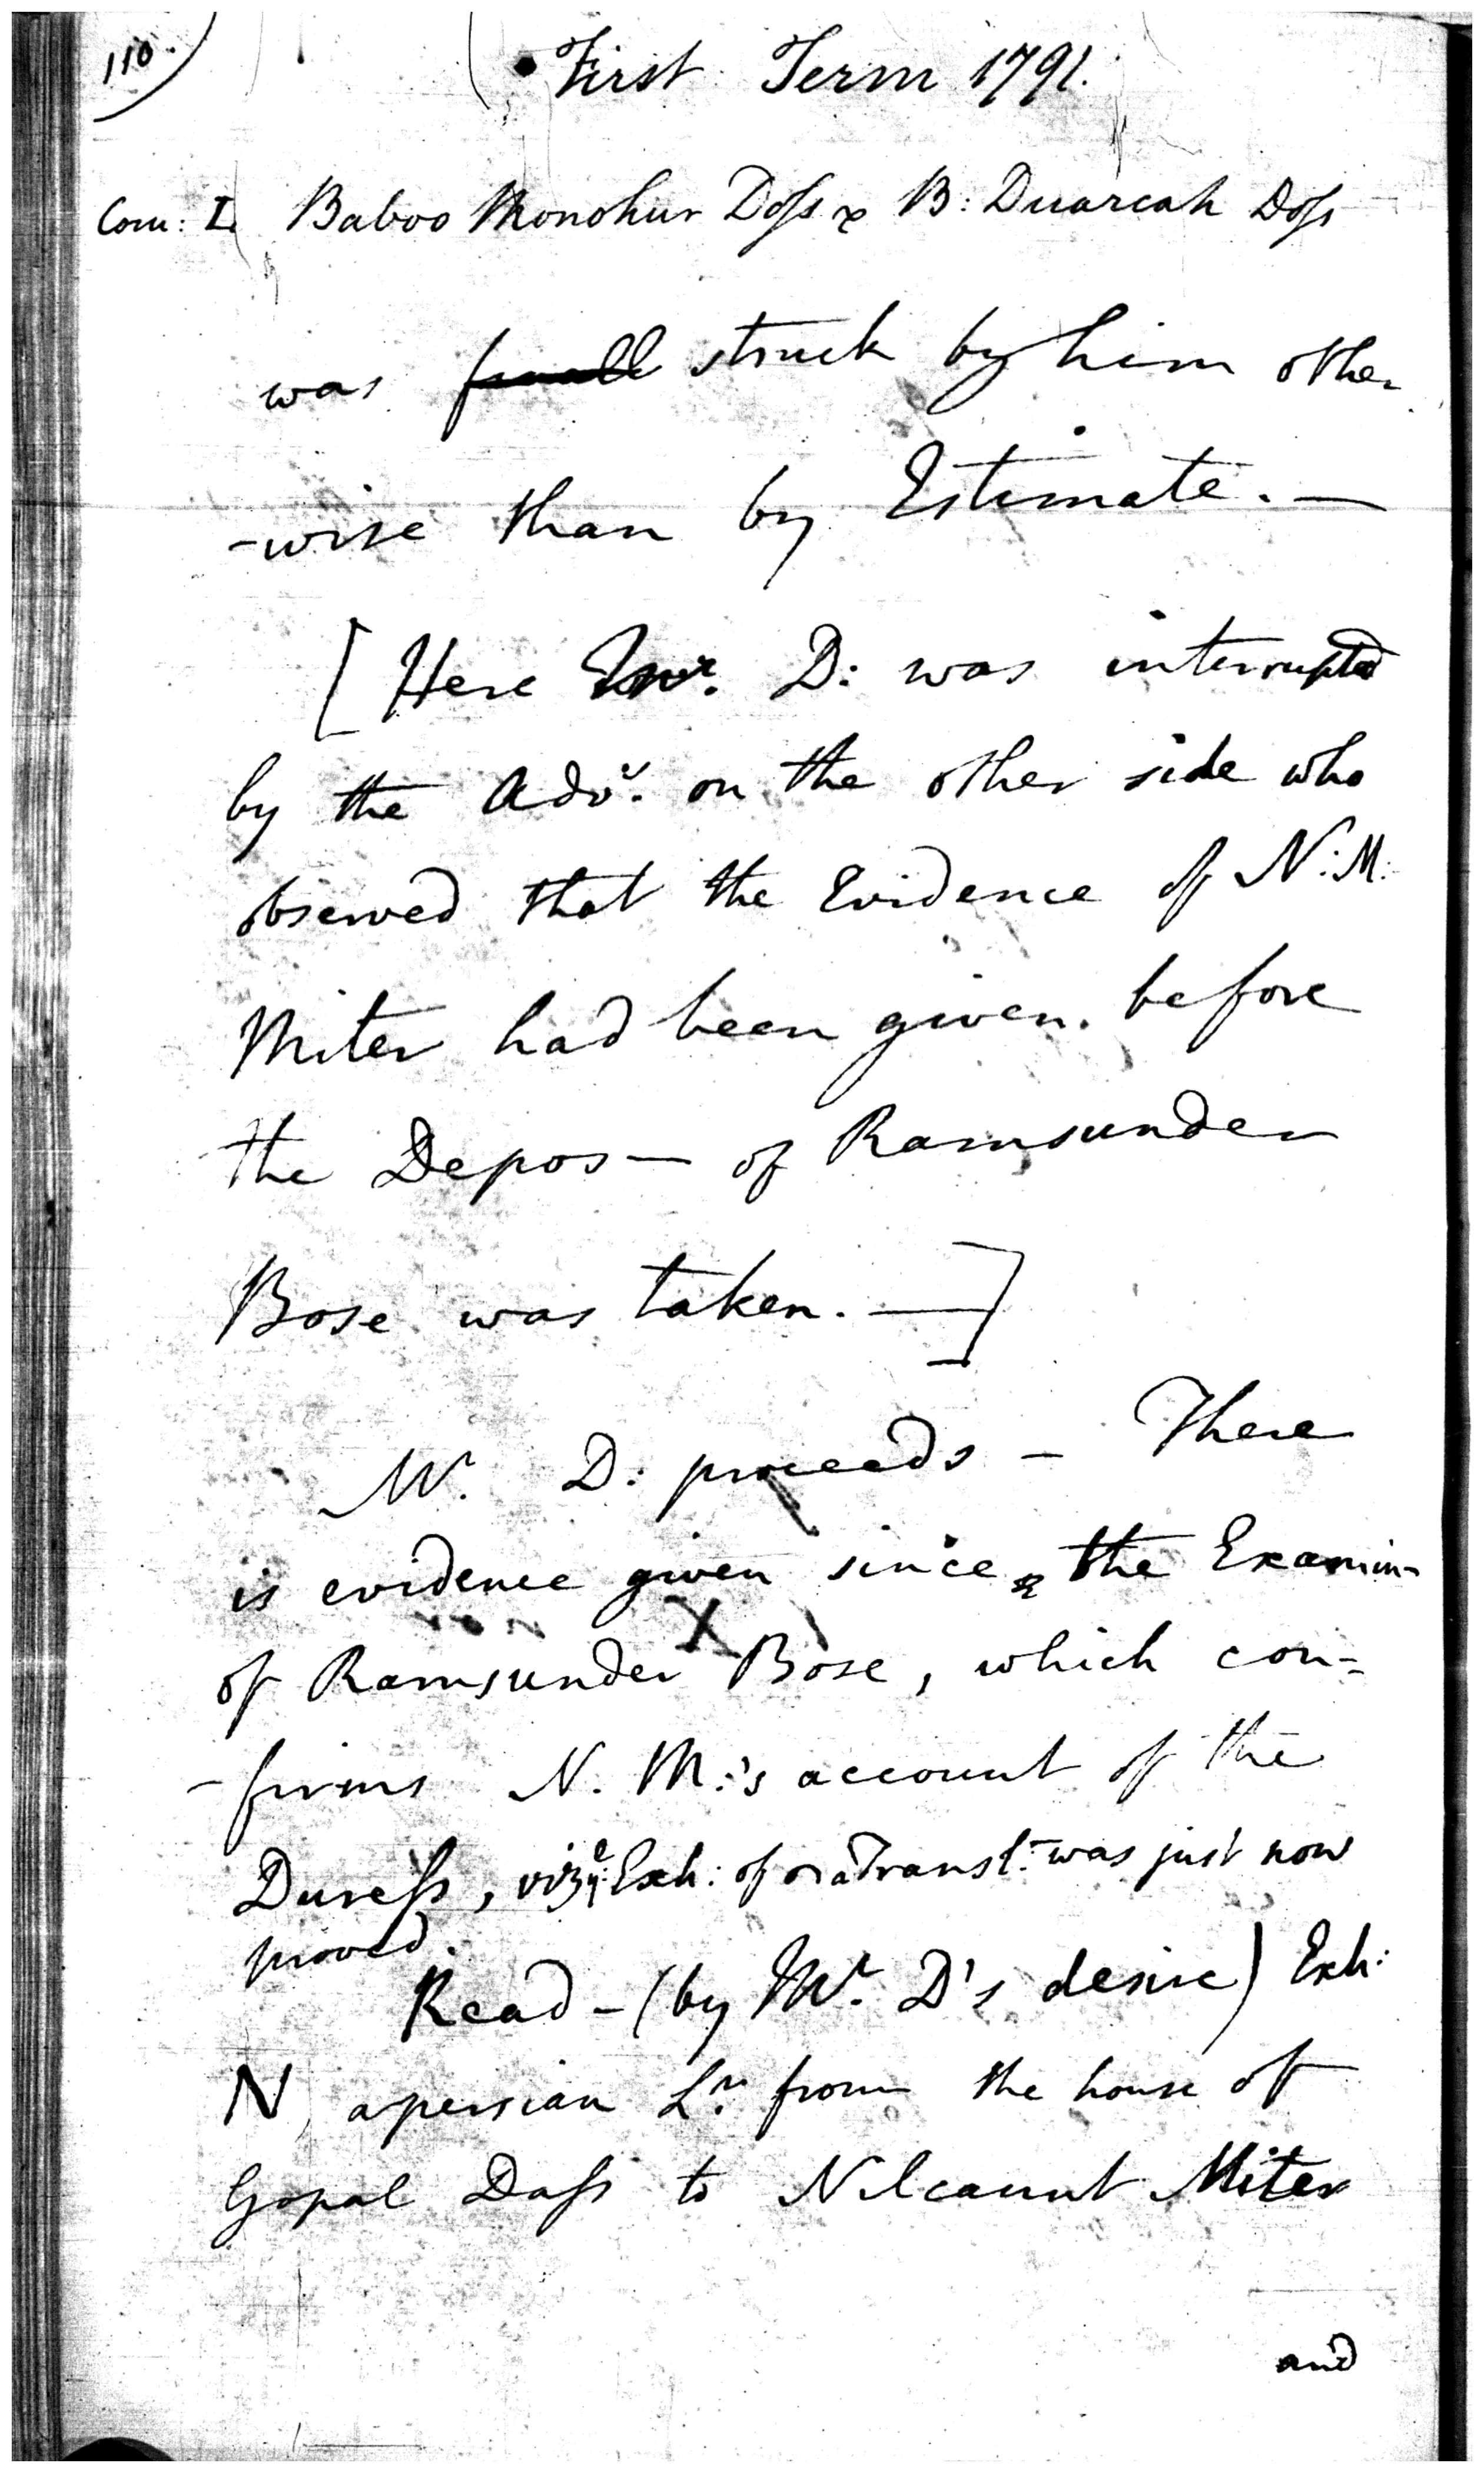 110.
First Term 1791.
Com: L. Baboo Monohur Doss & B: Duarcah Doss
was struck by him other
-wise than by Estimate. —
[ Here Mr. D: was interrupted
by the Adv. on the other side who
observed that the Evidence of N: M:
Miter had been given. before
the Depos— of Ramsunder
Bose was taken. — ]
Mr. D: proceeds — There
is evidence given since the Examin-
of Ramsunder Bose, which con=
-firms N. M:'s account of the
Duress, viz. ye. Exh: of a Transl: was just now
proved.
Read — (by Mr. D's desire) Exh:
N a persian Lr. from the house of
Gopal Dass to Nilcaunt Miter
and